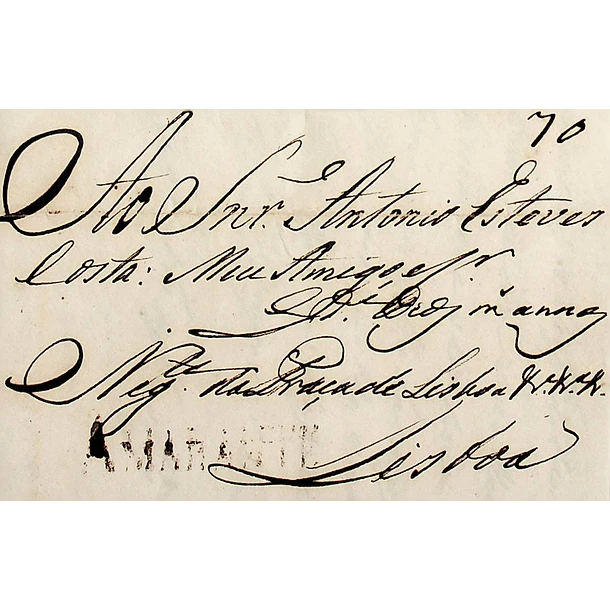 70
Ao Snr. Antonio Esteves
Costa: Meu Amigo e Sr.
Ds. m.s annos
Neg.te da Praça de Lisboa &.&.&.
AMARANTE
Lisboa